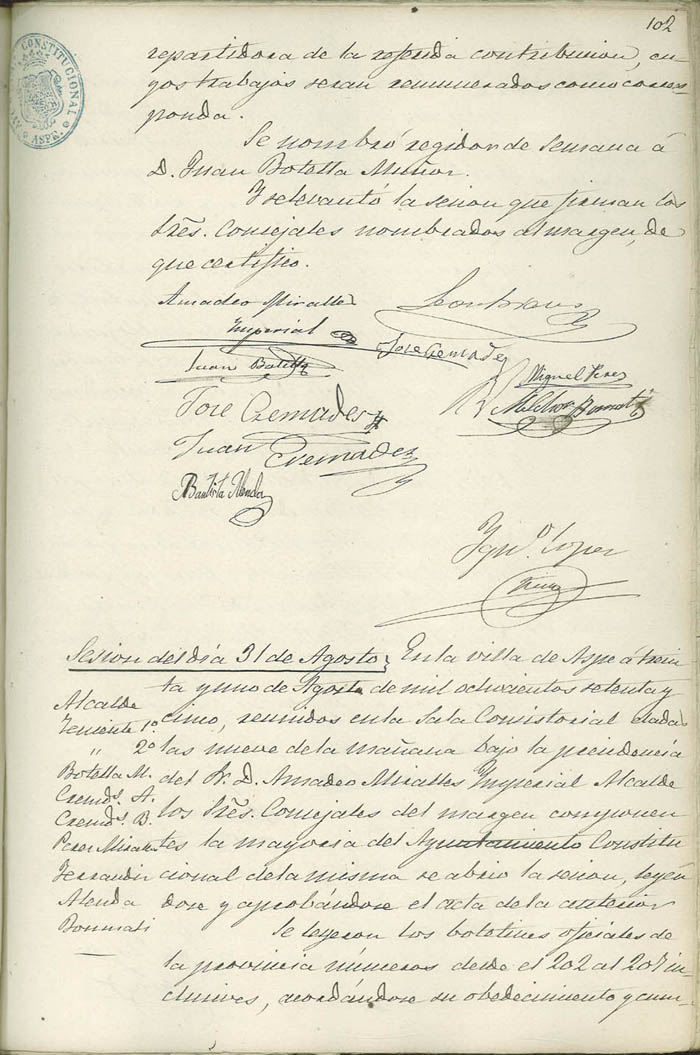 102
CONSTITUCIONAL
ASPE.
repartidora de la referida contribucion, cu-
yos trabajos seran remunerados como corres-
ponda.
Se nombró regidor de Semana á
D. Juan Botella Muñoz.
Y se levantó la sesion que firman los
Sres. Concejales nombrados al margen, de
que certifico.
Amadeo Miralles
Imperial
Jose Cremades
Juan Botella
Miguel Perez
Jose Cremades
Melchor Bonmati
Juan Cremades
Bautista Alenda
Ign.º Lopez
Sesion del dia 31 de Agosto, En la villa de Aspe á trein
ta y uno de Agosto de mil ochocientos setenta y
cinco, reunidos en la Sala Consistorial dadas
las nueve de la mañana bajo la presidencia
del Sr. D. Amadeo Miralles Imperial Alcalde
los Sres. Concejales del margen componen
tes la mayoria del Ayuntamiento Constitu
cional de la misma se abrio la sesion, leyen
dose y aprobándose el acta de la anterior
Se leyeron los boletines oficiales de
la provincia números desde el 202 al 207 in-
clusives, acordándose su obedecimiento y cum-
Alcalde
Teniente 1º
" 2º
Botella M.
Cremds. A.
Cremds. B.
Perez Miralles
Ferrandiz
Alenda
Bonmati